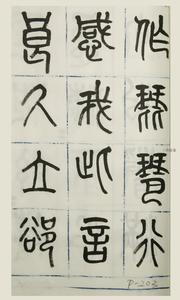 作琵琶行
感我此言
良久立卻
P-202